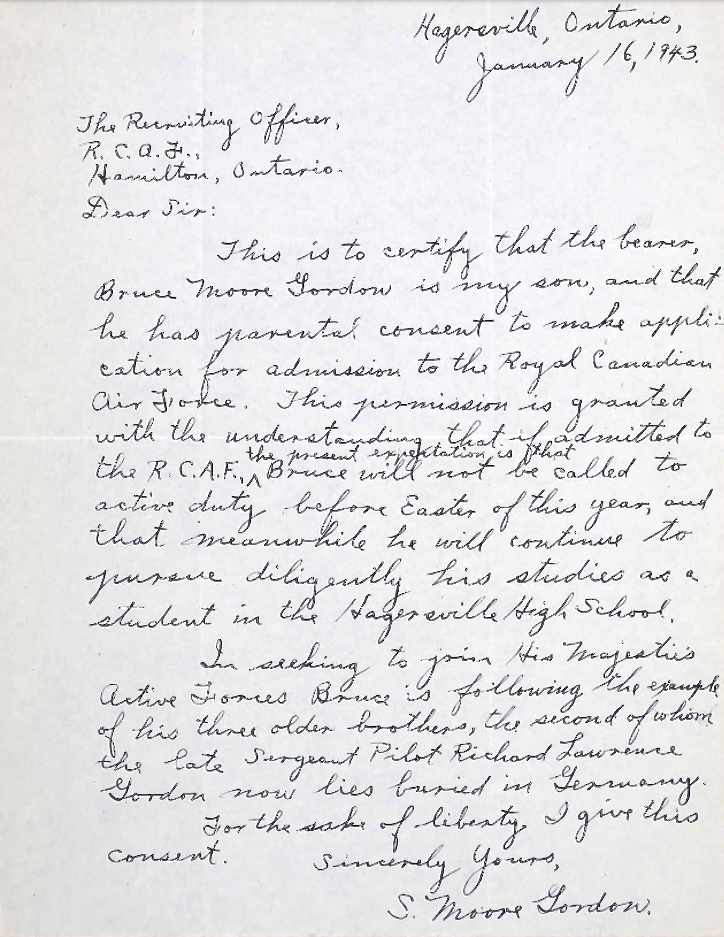 Hagersville, Ontario,
January 16, 1943.
The Recruiting Officer,
R.C.A.F.,
Hamilton, Ontario.
Dear Sir:
This is to certify that the bearer,
Bruce Moore Gordon is my son, and that
he has parental consent to make appli-
cation for admission to the Royal Canadian
Air Force. This permission is granted
with the understanding that if admitted to
the present expectation is that
the R.C.A.F., ^ Bruce will not be called to
active duty before Easter of this year, and
that meanwhile he will continue to
pursue diligently his studies as a
student in the Hagersville High School.
In seeking to join His Majestie's
Active Forces Bruce is following the example
of his three older brothers, the second of whom
the late Sergeant Pilot Richard Lawrence
Gordon now lies buried in Germany.
For the sake of liberty I give this
consent.
Sincerely Yours,
S. Moore Gordon.